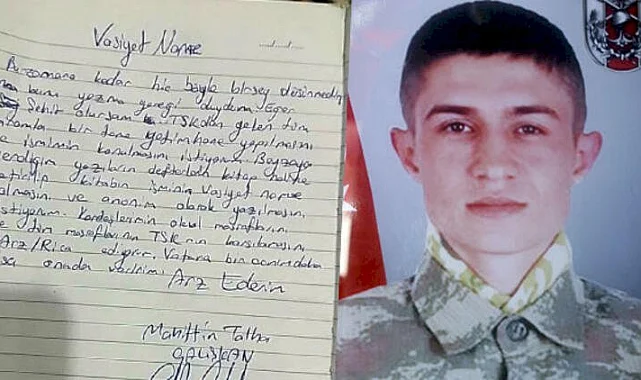 Vasiyet Name
Bu zamana kadar hiç böyle birşey düşünmedim
bunu yazma gereği duydum. Eğer
Şehit olursam TSK'dan gelen tüm
bir tane yetimhane yapılmasını
isminin konulmasını istiyorum.
yazıların defterden kitap haline
kitabın isminin Vasiyet name
ve anonim olarak yazılmasını
Kardeşlerimin okul masrafların
tüm masraflarının TSK'nın karşılamasını
Arz/Rica ediyorum. Vatana bin canım daha
onada
Arz Ederim
Mahittin Talha
ÇALIŞKAN